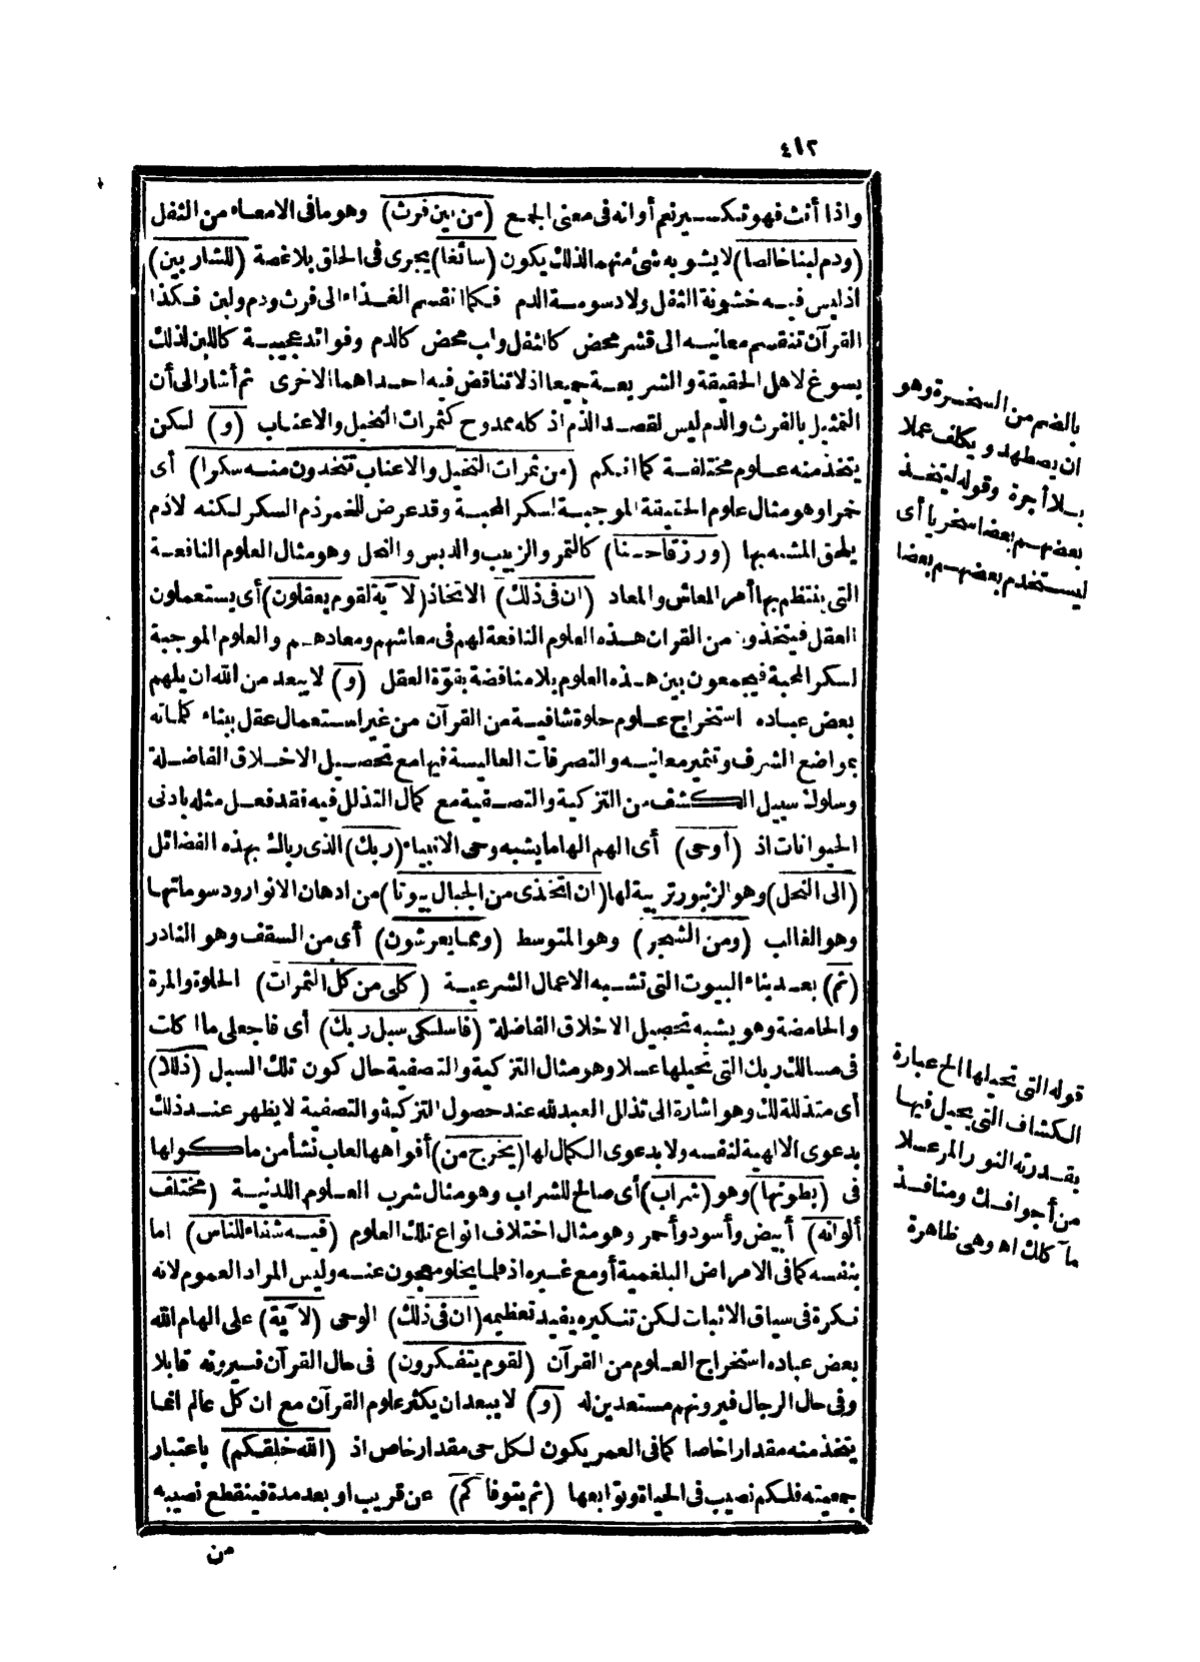 ٤١٢
واذا أنث فهو تكسير نعم أوانه فى معنى الجمع (من بين فرث) وهو ما فى الامعاء من الثفل
(ودم لبنا خالصا) لا يشوبه شئ منهما لذلك يكون (سائغا) يجرى فى الحلق بلا غصة (للشاربين)
اذ ليس فيه خشونة الثفل ولا دسومة الدم فكما انقسم الغذاء الى فرث ودم ولبن فكذا
القرآن تنقسم معانيه الى قشر محض كالثفل ولب محض كالدم وفوائد عجيبة كاللبن لذلك
يسوغ لاهل الحقيقة والشريعة جميعا اذ لا تناقض فيه احداهما الاخرى ثم أشار الى أن
التمثيل بالفرث والدم ليس لقصد الذم اذ كله ممدوح كثمرات النخيل والاعناب (و) لكن
يتخذ منه علوم مختلفة كما انكم (من ثمرات النخيل والاعناب تتخذون منه سكرا) أى
خمرا وهو مثال علوم الحقيقة الموجبة لسكر المحبة وقد عرض للخمر ذم السكر لكنه لا ذم
يلحق المشبه بها (ورزقا حسنا) كالتمر والزبيب والدبس والخل وهو مثال العلوم النافعة
التى ينتظم بها أمر المعاش والمعاد (ان فى ذلك) الاتخاذ (لآية لقوم يعقلون) أى يستعملون
العقل فيتخذون من القرآن هذه العلوم النافعة لهم فى معاشهم ومعادهم والعلوم الموجبة
لسكر المحبة فيجمعون بين هذه العلوم بلا مناقضة بقوة العقل (و) لا يبعد من الله ان يلهم
بعض عباده استخراج علوم حلوة شافية من القرآن من غير استعمال عقل ببناء كلماته
بمواضع الشرف وتثمير معانيه والتصرفات العالية فيها مع تحصيل الاخلاق الفاضلة
وسلوك سبيل الكشف من التزكية والتصفية مع كمال التذلل فيه فقد فعل مثله بادنى
الحيوانات اذ (أوحى) أى الهم الهاما يشبه وحى الانبياء (ربك) الذى رباك بهذه الفضائل
(الى النحل) وهو الزنبور تربية لها (ان اتخذى من الجبال بيوتا) من ادهان الانوار ودسوماتها
وهو الغالب (ومن الشجر) وهو المتوسط (ومما يعرشون) أى من السقف وهو النادر
(ثم) بعد بناء البيوت التى تشبه الاعمال الشرعية (كلى من كل الثمرات) الحلوة والمرة
والحامضة وهو يشبه تحصيل الاخلاق الفاضلة (فاسلكى سبل ربك) أى فاجعلى ما اكلت
فى مسالك ربك التى تحيلها عسلا وهو مثال التزكية والتصفية حال كون تلك السبل (ذللا)
أى متذللة لك وهو اشارة الى تذلل العبد لله عند حصول التزكية والتصفية لا يظهر عند ذلك
بدعوى الالهية لنفسه ولا بدعوى الكمال لها (يخرج من) أفواهها لعاب نشأ من مأكولها
فى (بطونها) وهو (شراب) أى صالح للشراب وهو مثال شرب العلوم اللدنية (مختلف
ألوانه) أبيض وأسود وأحمر وهو مثال اختلاف انواع تلك العلوم (فيه شفاء للناس) اما
بنفسه كما فى الامراض البلغمية أو مع غيره اذ قلما يخلو معجون عنه وليس المراد العموم لانه
نكرة فى سياق الاثبات لكن تنكيره يفيد تعظيمه (ان فى ذلك) الوحى (لآية) على الهام الله
بعض عباده استخراج العلوم من القرآن (لقوم يتفكرون) فى حال القرآن فسيرونه قابلا
وفى حال الرجال فيرونهم مستعدين له (و) لا يبعد ان يكثر علوم القرآن مع ان كل عالم انما
يتخذ منه مقدارا خاصا كما فى العمر يكون لكل حى مقدار خاص اذ (الله خلقكم) باعتبار
جمعيته فلكم نصيب فى الحياة وتوابعها (ثم يتوفاكم) عن قريب او بعد مدة فينقطع نصيبه
من
بالضم من السخرة وهو
ان يضطهد ويكلف عملا
بلا أجرة وقوله ليتخذ
بعضهم بعضا سخريا أى
ليستخدم بعضهم بعضا
قوله التى تحيلها الخ عبارة
الكشاف التى يحيل فيها
بقدرته النور المر عسلا
من أجوافك ومنافذ
مآكلك اه وهى ظاهرة